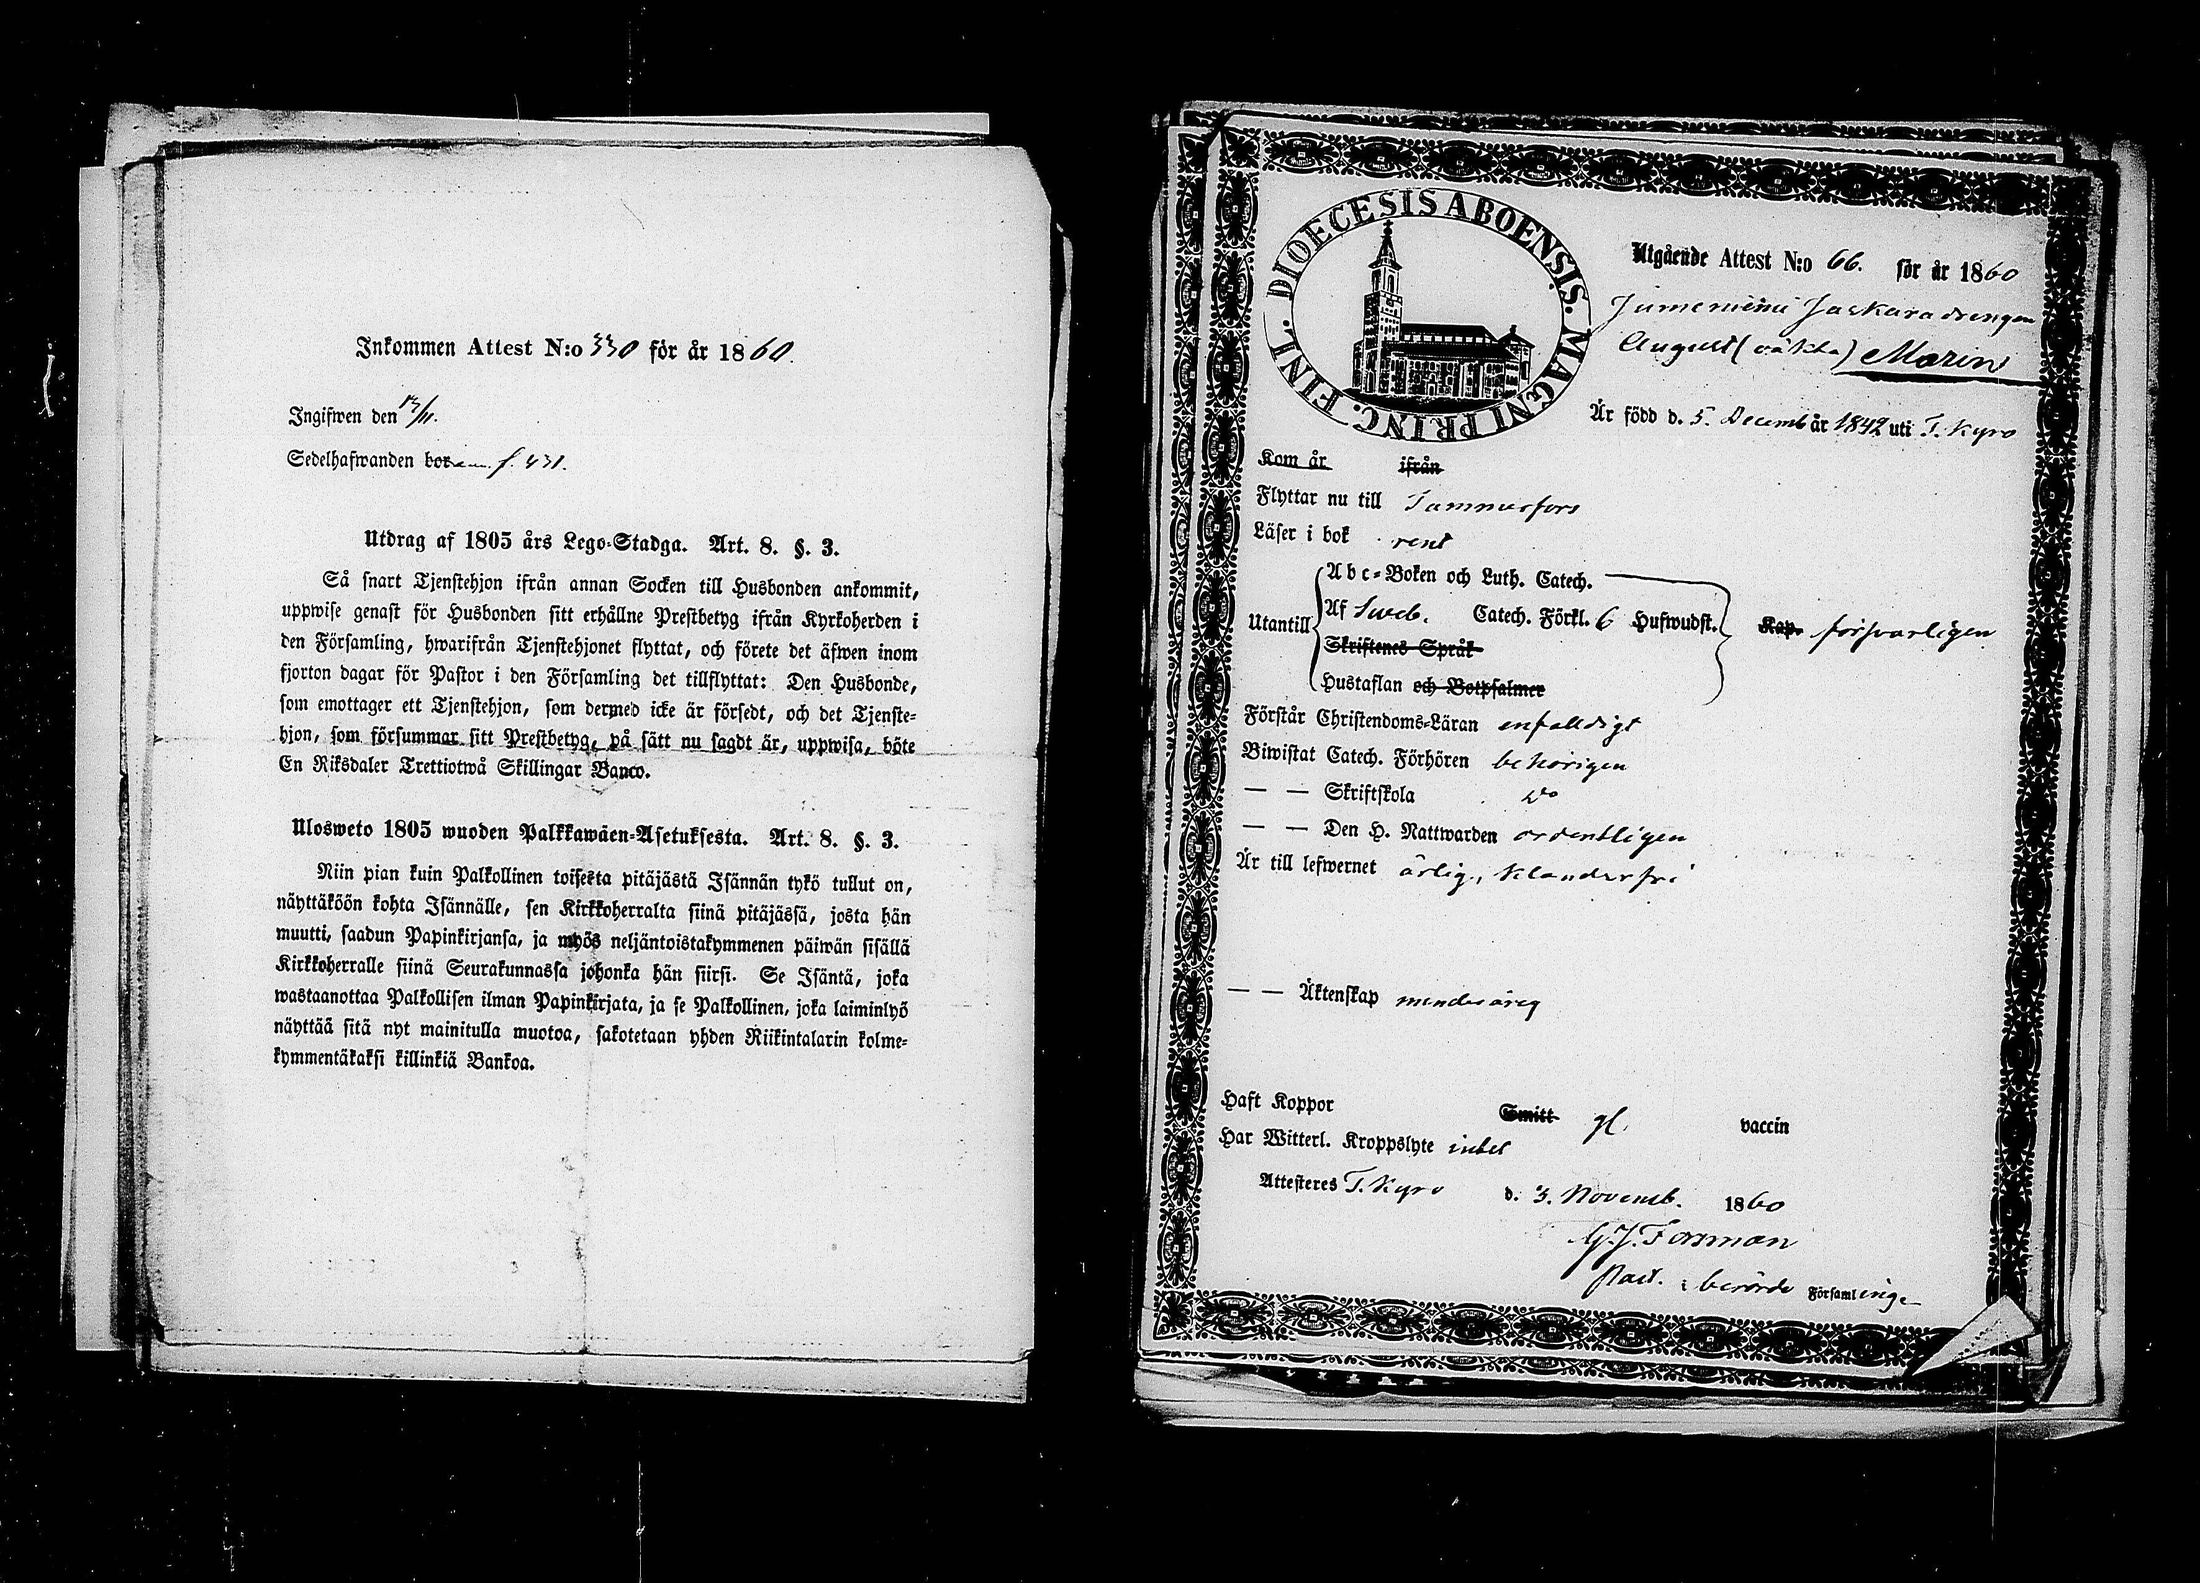 Inkommen Attest N:o 330 för år 1860.
Ingifwen den 13/11.
Sedelhafwanden bor f. 431.
Utdrag af 1805 års Lego-Stadga. Art. 8. §. 3.
Så snart Tjenstehjon ifrån annan Socken till Husbonden ankommit,
uppwise genast för Husbonden sitt erhållne Prestbetyg ifrån Kyrkoherden i
den Församling, hwarifrån Tjenstehjonet flyttat, och förete det äfwen inom
fjorton dagar för Pastor i den Församling det tillflyttat: Den Husbonde,
som emottager ett Tjenstehjon, som dermed icke är försedt, och det Tjenste-
hjon, som försummar sitt Prestbetyg, på sätt nu sagdt är, uppwisa, böte
En Riksdaler Trettiotwå Skillingar Banco.
Ulosweto 1805 wuoden Palkkawäen-Asetuksesta. Art. 8. §. 3.
Niin pian kuin Palkollinen toisesta pitäjästä Isännän tykö tullut on,
näyttäköön kohta Isännälle, sen Kirkkoherralta siinä pitäjässä, josta hän
muutti, saadun Papinkirjansa, ja myös neljäntoistakymmenen päiwän sisällä
Kirkkoherralle siinä Seurakunnassa johonka hän siirsi. Se Isäntä, joka
wastaanottaa Palkollisen ilman Papinkirjata, ja se Palkollinen, joka laiminlyö
näyttää sitä nyt mainitulla muotoa, sakotetaan yhden Riikintalarin kolme-
kymmentäkaksi killinkiä Bankoa.
DIOECESIS ABOENSIS. MAGNI PRINC. FINL.
Utgående Attest N:o 66. för år 1860
Jumeniemi Jaskaradrengen
August (oäkta) Morin
Är född d. 5. Decemb år 1842 uti T. Kyro
Kom år ifrån
Flyttar nu till Tammerfors
Läser i bok rent
Abc-Boken och Luth. Catech.
Utantill Af Sweb. Catech. Förkl. 6 Hufwudst. Kap. försvarligen
Skriftenes Språk
Hustaflan och Botpsalmer
Förstår Christendoms-Läran enfalldigt
Biwistat Catech. Förhören behörigen
— — Skriftskola do
— — Den H. Nattwarden ordentligen
Är till lefwernet ärlig, klanderfri
— — Äktenskap minderårig
Haft Koppor Smitt gl. vaccin
Har Witterl. Kroppslyte intet
Attesteres T. Kyro d. 3. Novemb. 1860
G. J. Forsman
Past. i berörde Församlinge